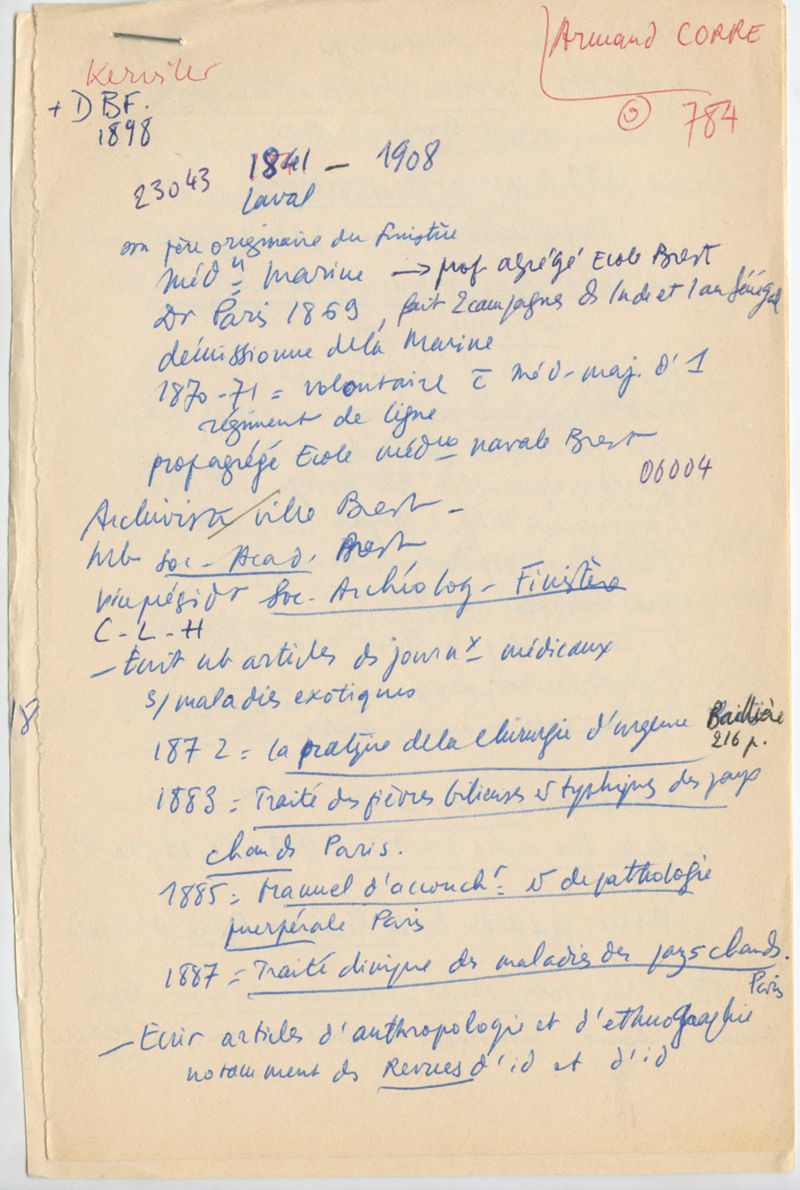 Armand CORRE
784
Kerviler
+ DBF.
1898
1841 - 1908
23043
Laval
son père originaire du Finistère
Méd n = Marine → prof agrégé Ecole Brest
Dr Paris 1869, fait 2 campagnes ds Inde et 1 au Sénégal
démissionne de la Marine
1870-71 = volontaire c̄ méd-maj. d' 1
régiment de ligne
prof agrégé Ecole méd navale Brest
06004
Archiviste ville Brest -
mb Soc- Acad. Brest
viceprésidt Soc- Archéolog- Finistère
C - L - H
- Ecrit nb articles ds journx médicaux
s/ maladies exotiques
18
1872 = La pratique de la chirurgie d'urgence Baillière
216 p.
1883 = Traité des fièvres bilieuses et typhiques des pays
chauds Paris.
1885 = Manuel d'accoucht = et de pathologie
puerpérale Paris
1887 = Traité clinique des maladies des pays chauds.
Paris
- Ecrit articles d'anthropologie et d'ethnographie
notamment ds Revues d'id et d'id